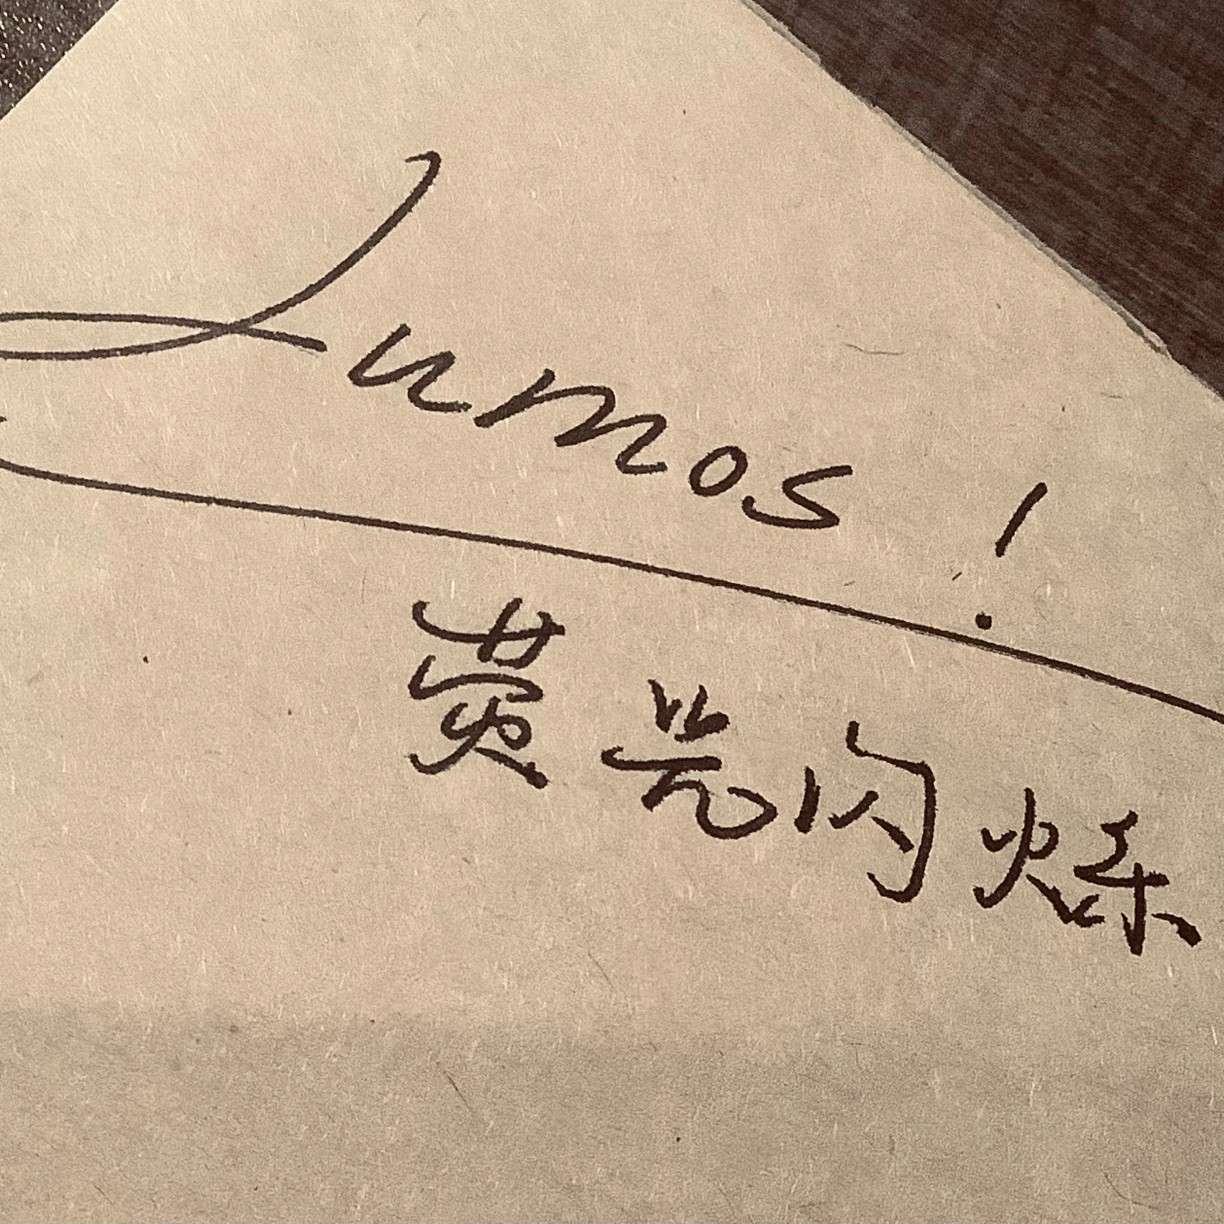 Lumos!
荧光闪烁